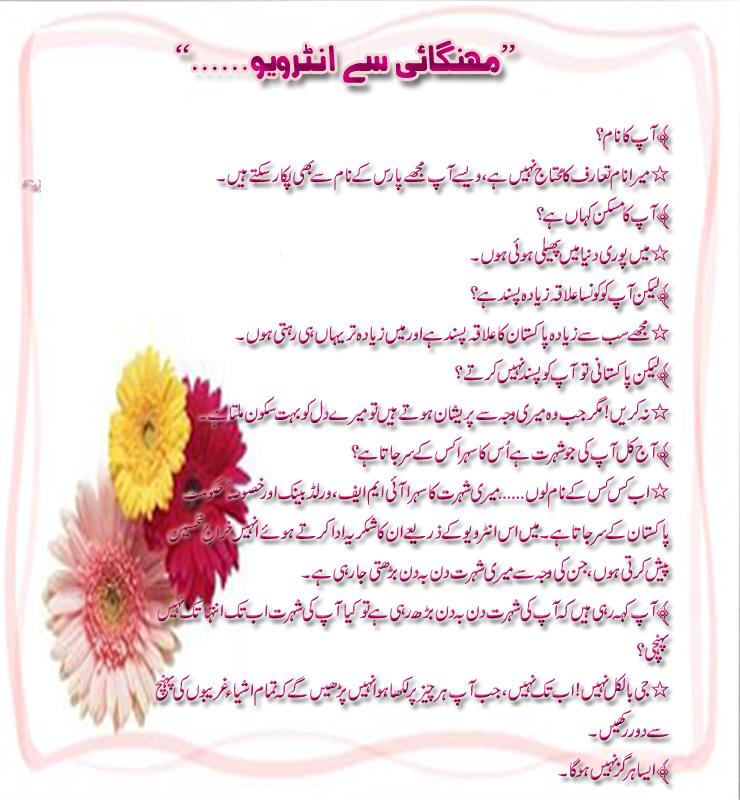 ”مہنگائی سے انٹرویو......“
﴾آپ کا نام؟
☆میرا نام تعارف کا محتاج نہیں ہے، ویسے آپ مجھے پارس کے نام سے بھی پکار سکتے ہیں۔
﴾آپ کا مسکن کہاں ہے؟
☆میں پوری دنیا میں پھیلی ہوئی ہوں۔
﴾لیکن آپ کو کونسا علاقہ زیادہ پسند ہے؟
☆مجھے سب سے زیادہ پاکستان کا علاقہ پسند ہے اور میں زیادہ تر یہاں ہی رہتی ہوں۔
﴾لیکن پاکستانی تو آپ کو پسند نہیں کرتے؟
☆نہ کریں! مگر جب وہ میری وجہ سے پریشان ہوتے ہیں تو میرے دل کو بہت سکون ملتا ہے۔
﴾آج کل آپ کی جو شہرت ہے اُس کا سہرا کس کے سر جاتا ہے؟
☆اب کس کس کے نام لوں......میری شہرت کا سہرا آئی ایم ایف، ورلڈ بینک اور خصوصاً حکومت
پاکستان کے سر جاتا ہے۔ میں اس انٹرویو کے ذریعے ان کا شکریہ ادا کرتے ہوئے انہیں خراج تحسین
پیش کرتی ہوں، جن کی وجہ سے میری شہرت دن بہ دن بڑھتی جا رہی ہے۔
﴾آپ کہہ رہی ہیں کہ آپ کی شہرت دن بہ دن بڑھ رہی ہے تو کیا آپ کی شہرت اب تک انتہا تک نہیں
پہنچی؟
☆جی بالکل نہیں! اب تک نہیں، جب آپ ہر چیز پر لکھا ہوا نہیں پڑھیں گے کہ تمام اشیاء غریبوں کی پہنچ
سے دور رکھیں۔
﴾ایسا ہرگز نہیں ہوگا۔